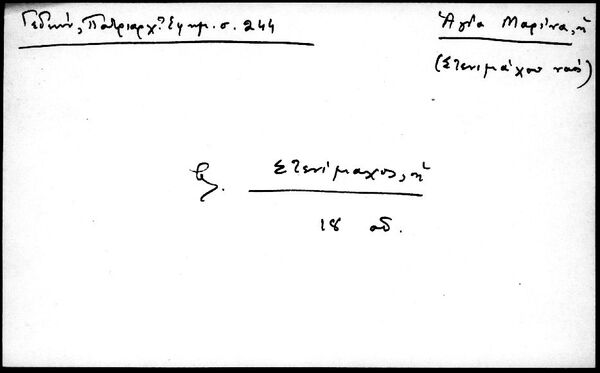 Γεδεών, Πατριαρχ. Εφημ. σ. 244
Ἁγία Μαρίνα, ἡ
(Στενιμάχου ναός)
βλ. Στενίμαχος, ἡ
18 αἰ.